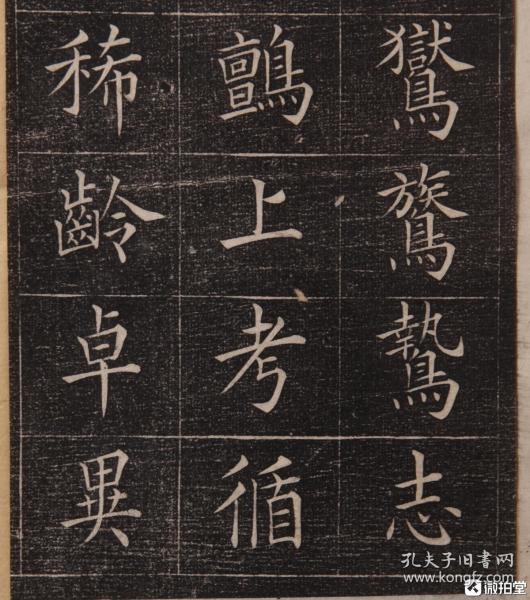 鸑鷟鷙志
鸇上考循
稀齡卓異
孔夫子旧书网
www.kongfz.com
微拍堂